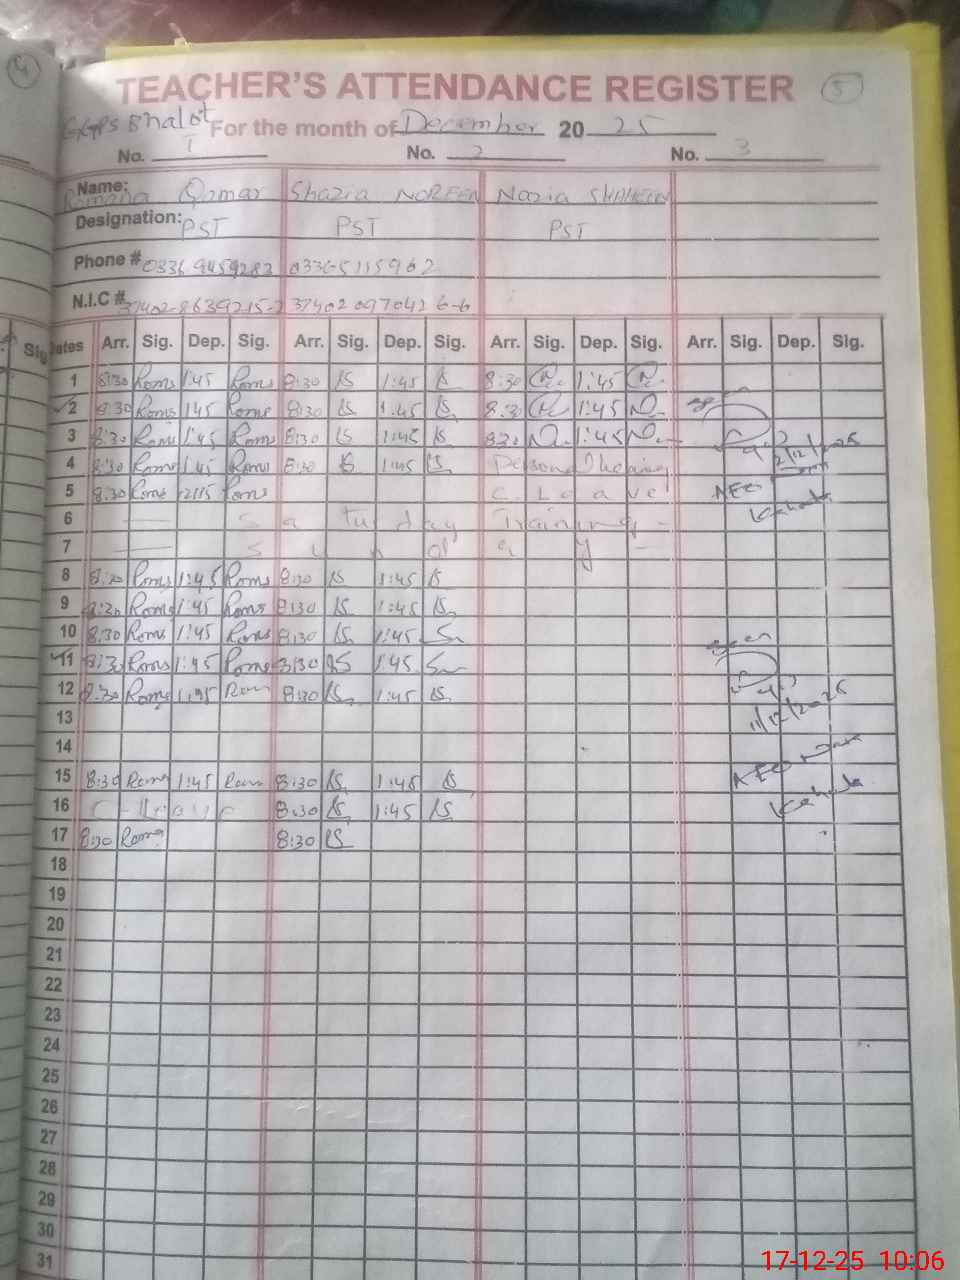 4
TEACHER'S ATTENDANCE REGISTER 5
GGPS Bhalot For the month of December 2025
No. 1 No. 2 No. 3
Name: Romana Qamar Shazia NOREEN Nazia SHAHEEN
Designation: PST PST PST
Phone # 0336 9459283 0336-5115962
N.I.C #
Sig Dates Arr. Sig. Dep. Sig. Arr. Sig. Dep. Sig. Arr. Sig. Dep. Sig. Arr. Sig. Dep. Sig.
1 8:30 Roms 1:45 Roms 8:30 1:45 8:30 1:45
2 8:30 Roms 1:45 Roms 8:30 1:45 8:30 1:45
3 8:30 Roms 1:45 Roms 8:30 1:45 8:30 1:45
4 8:30 Roms 1:45 Roms 8:30 1:45 Personal hearing 2/12/2025
5 8:30 Roms Roms C. Leave AEO
6 Saturday Training Kahuta
7 Sunday
8 8:30 Roms 1:45 Roms 8:30 1:45
9 Roms 1:45 Roms 8:30 1:45
10 8:30 Roms 1:45 Roms 8:30 1:45
11 8:30 Roms 1:45 Roms 8:30 1:45
12 8:30 Roms 1:45 Rom 8:30 1:45
13 11/12/2025
14
15 8:30 Roms 1:45 Rom 8:30 1:45 AEO
16 C-Leave 8:30 1:45 Kahuta
17 8:30 Roms 8:30
18
19
20
21
22
23
24
25
26
27
28
29
30
31
17-12-25 10:06